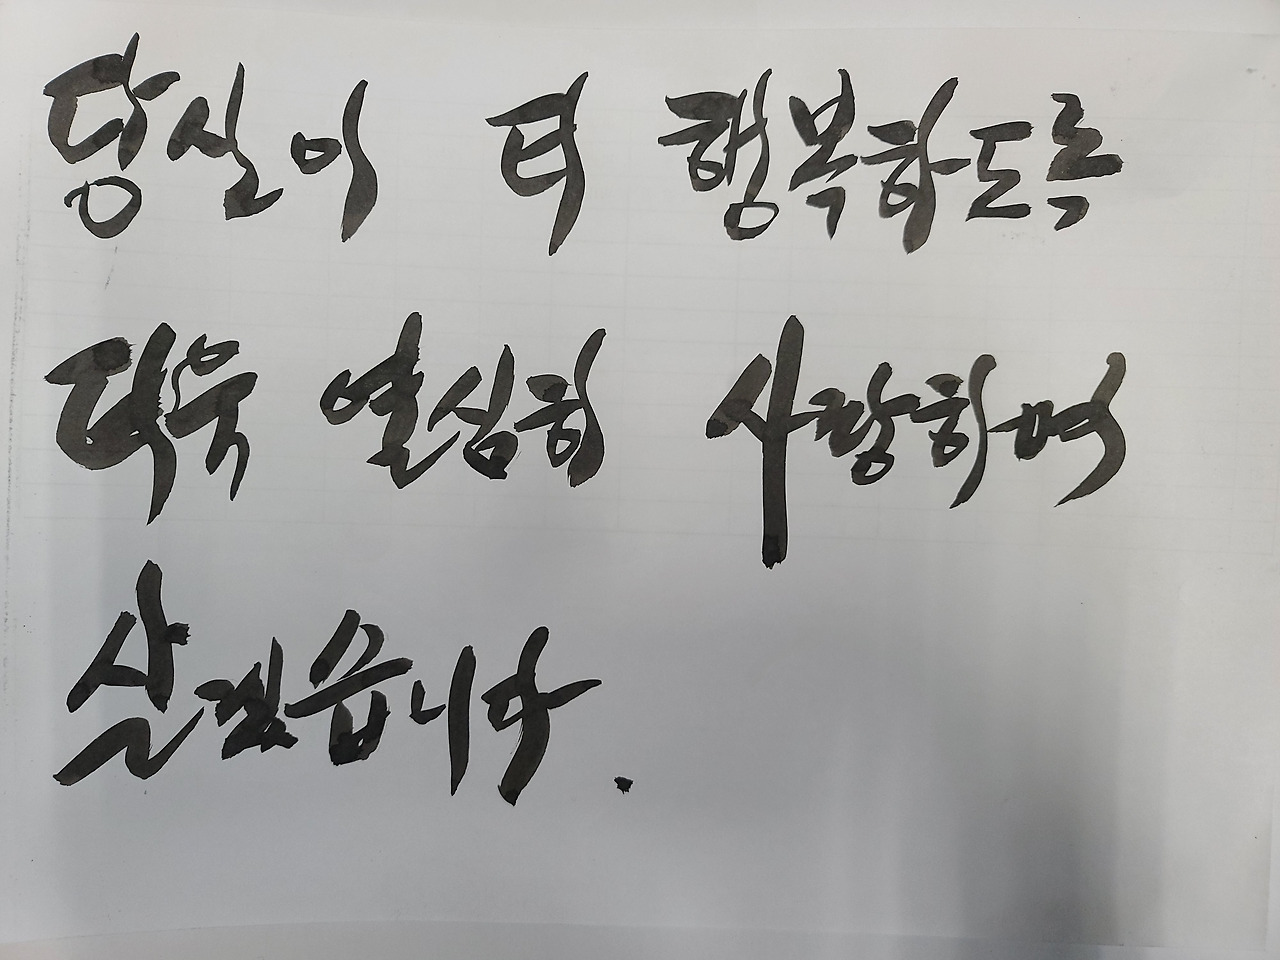 당신이 더 행복하도록
더욱 열심히 사랑하며
살겠습니다.